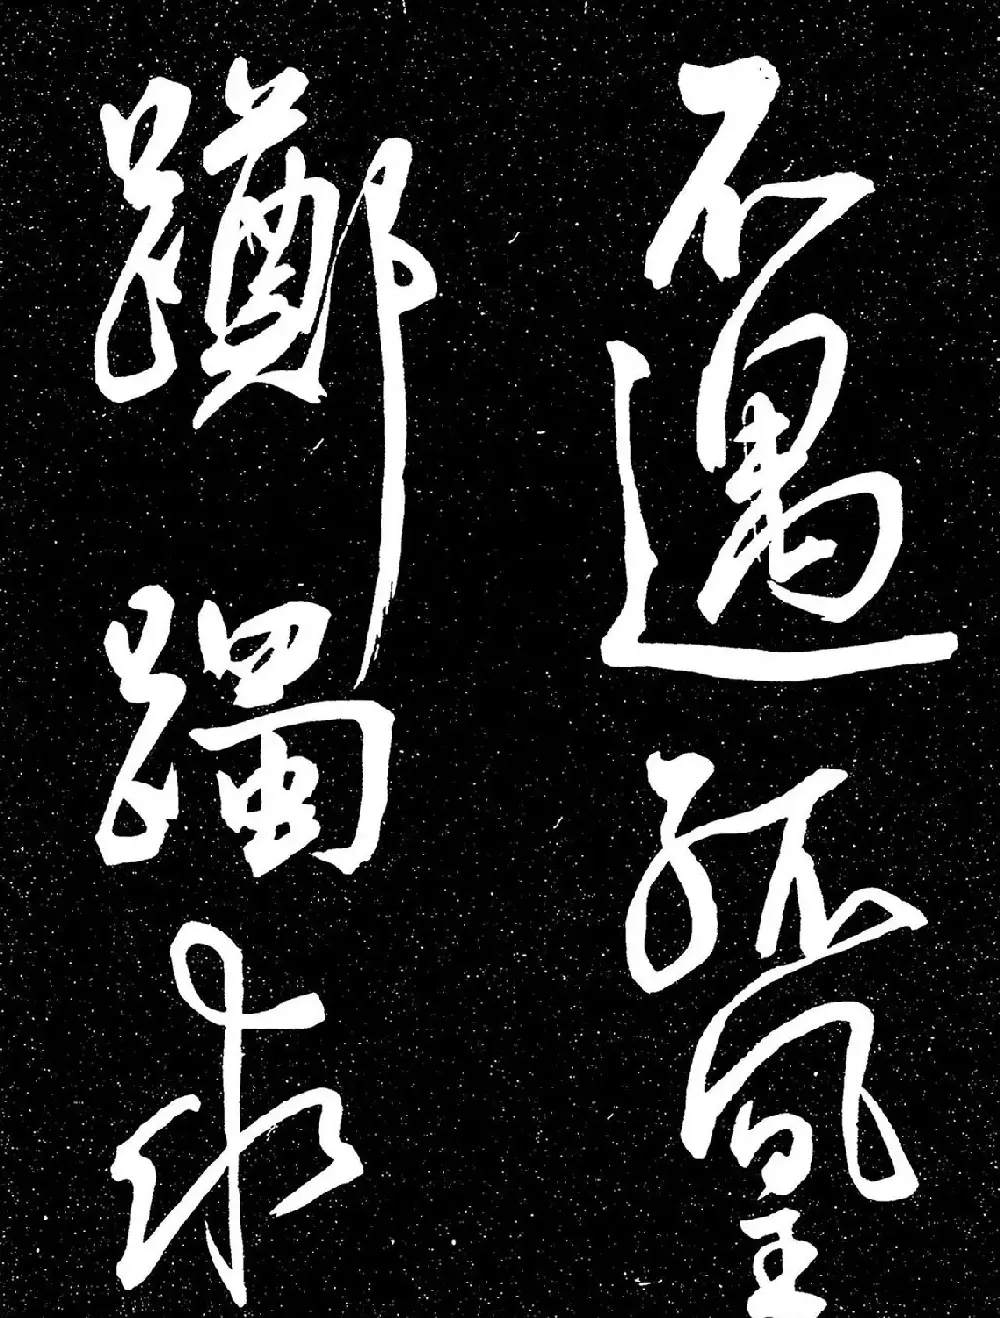 不遇孤凰
躑躅求